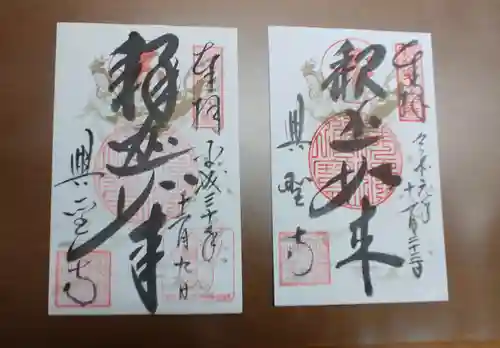 奉拝
平成三十年
十一月九日
釈迦如来
興聖寺
奉拝
令和元年
十一月二十三日
釈迦如来
興聖寺